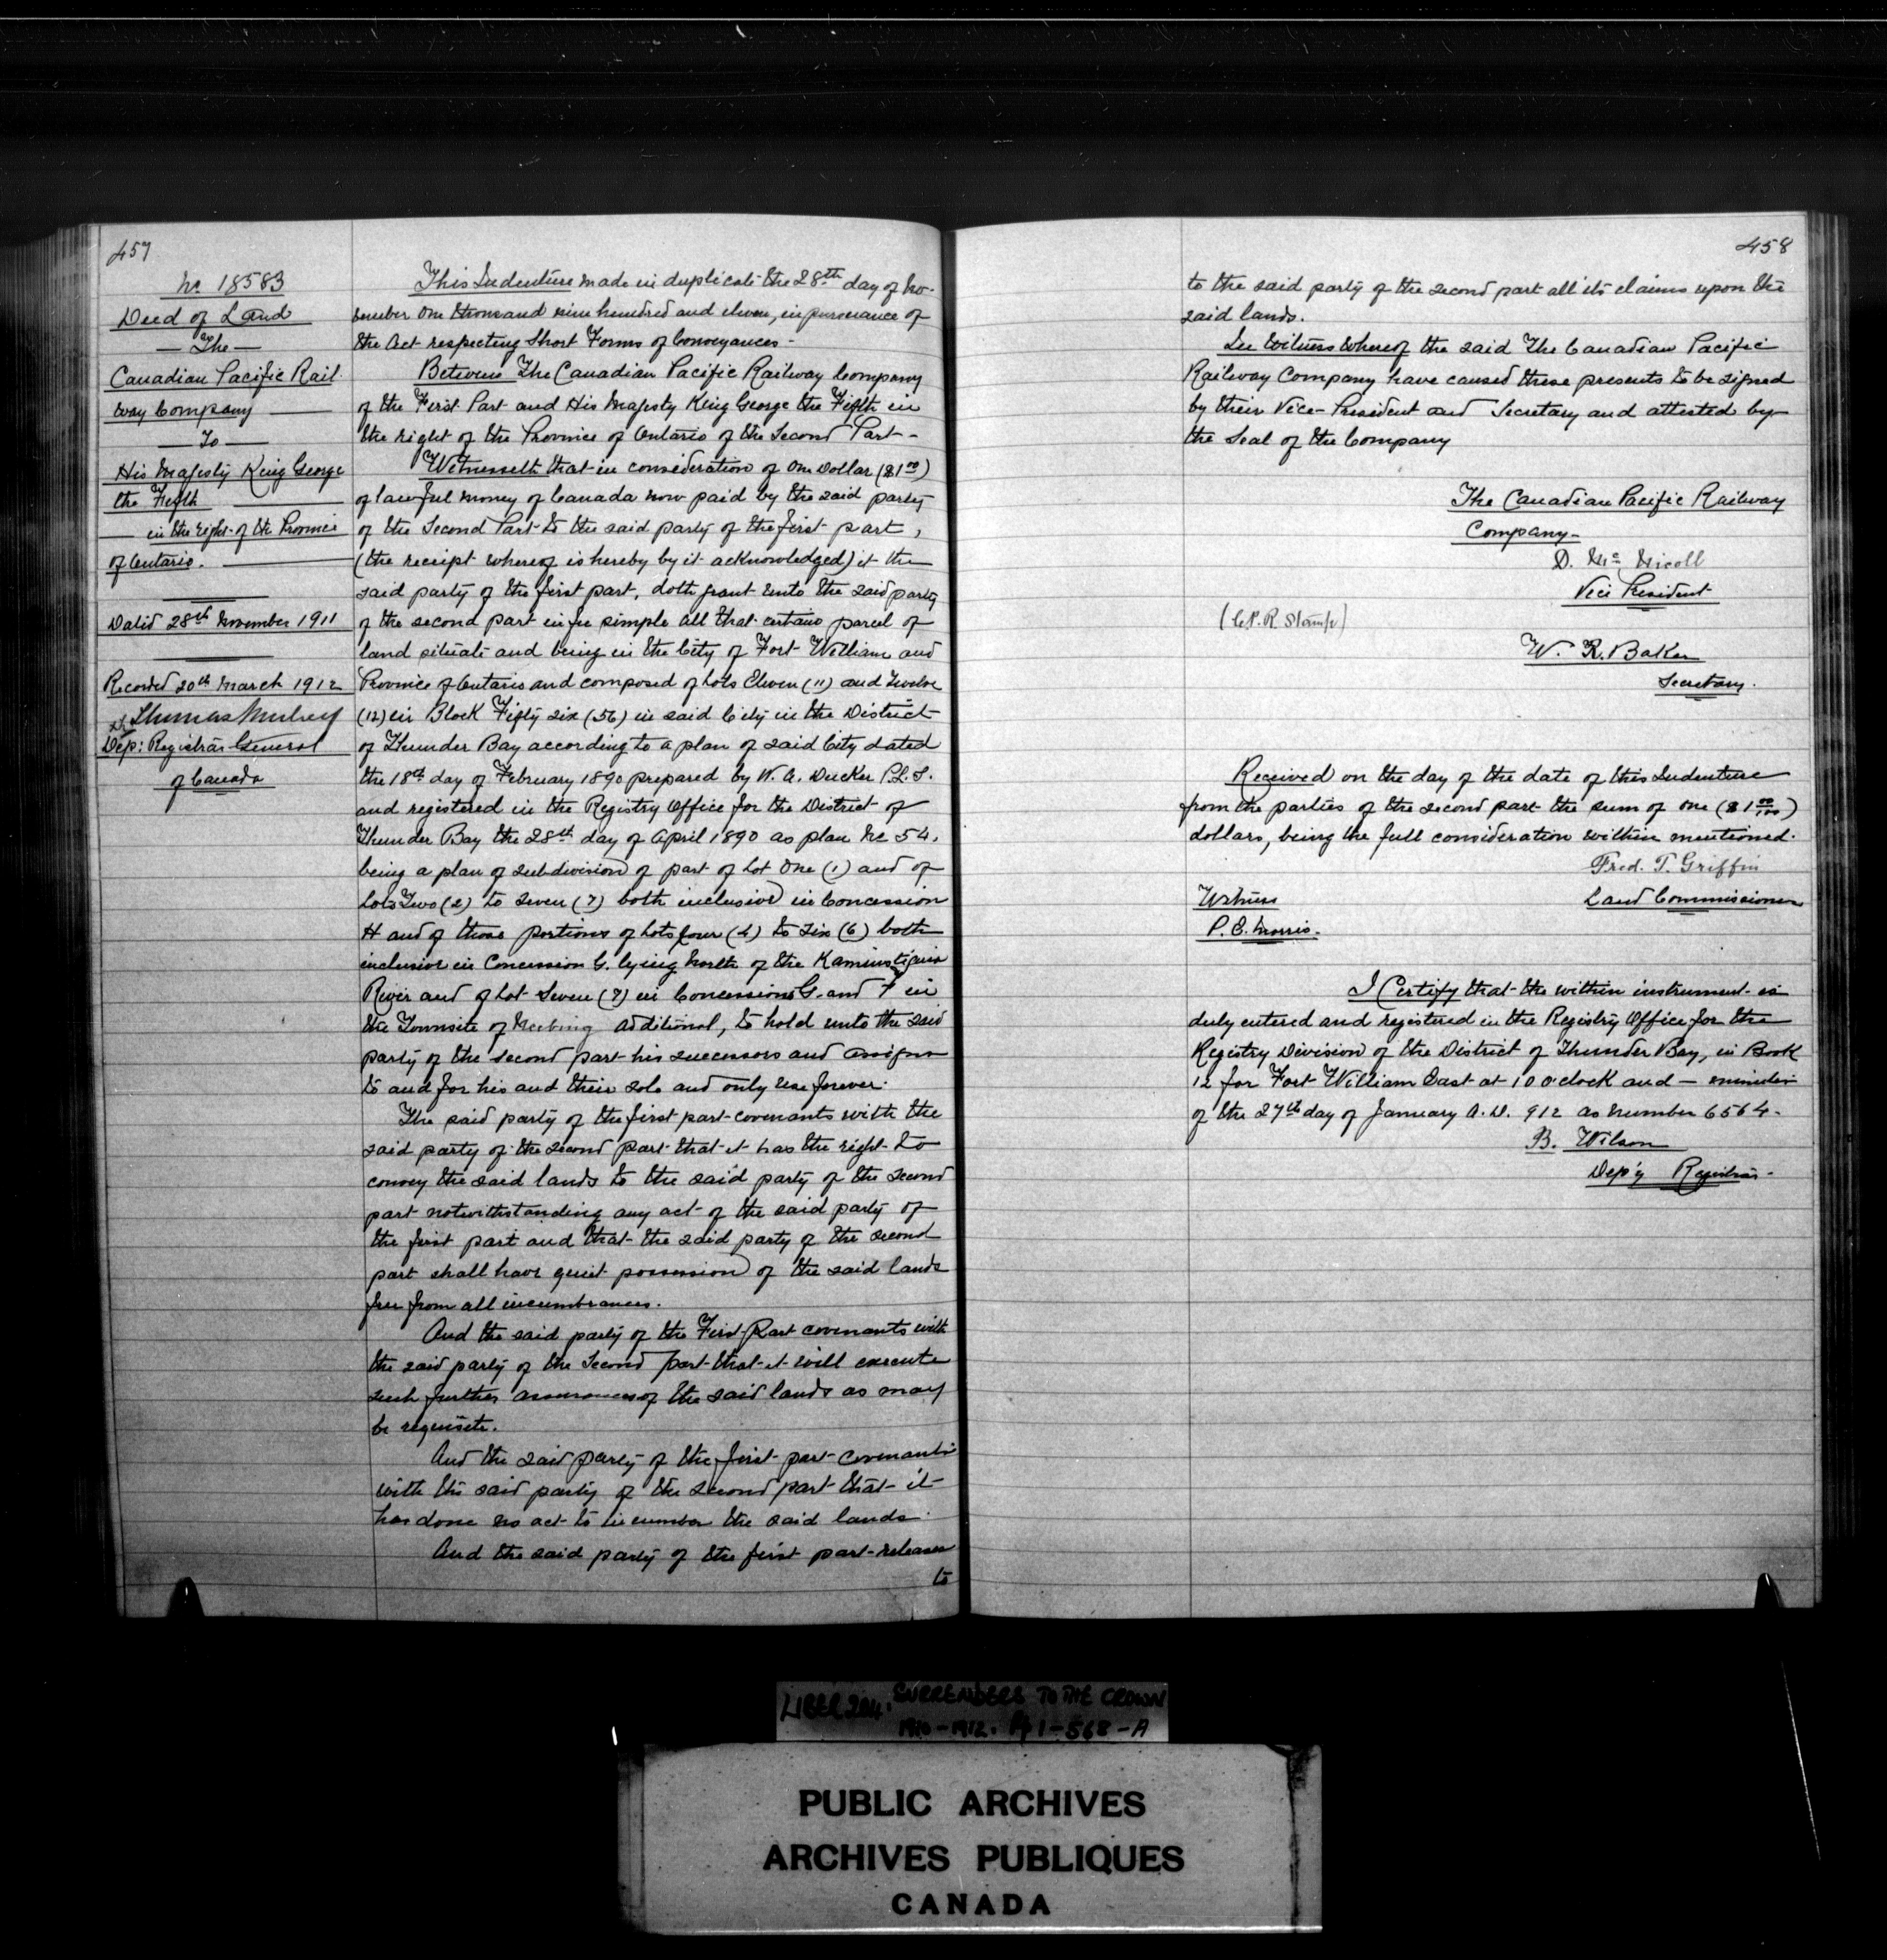 457
No 18583
Deed of Land
— The —
Canadian Pacific Rail
way Company —
— To —
His Majesty King George
the Fifth —
— in the right of the Province
of Ontario. —
Dated 28th November 1911
Recorded 20th March 1912
Thomas Mulvey
Dep: Registrar General
of Canada
This Indenture made in duplicate the 28th day of No-
vember One thousand nine hundred and eleven, in pursuance of
the Act respecting Short Forms of Conveyances -
Between The Canadian Pacific Railway Company
of the First Part and His Majesty King George the Fifth in
the right of the Province of Ontario of the Second Part -
Witnesseth that in consideration of One Dollar ($1 00)
of lawful money of Canada now paid by the said party
of the Second Part to the said party of the first part,
(the receipt whereof is hereby by it acknowledged) it the
said party of the first part, doth grant unto the said party
of the second part in fee simple all that certain parcel of
land situate and being in the City of Fort William and
Province of Ontario and composed of Lots Eleven (11) and Twelve
(12) in Block Fifty six (56) in said City in the District
of Thunder Bay according to a plan of said City dated
the 18th day of February 1890 prepared by W. A. Ducker P.L.S.
and registered in the Registry Office for the District of
Thunder Bay the 28th day of April 1890 as plan No 54,
being a plan of subdivision of part of Lot One (1) and of
Lots Two (2) to seven (7) both inclusive in Concession
H and of those portions of Lots four (4) to six (6) both
inclusive in Concession G. lying North of the Kaministiquia
River and of Lot Seven (7) in Concessions G. and F in
the Townsite of Neebing Additional, to hold unto the said
party of the second part his successors and assigns
to and for his and their sole and only use forever.
The said party of the first part covenants with the
said party of the second part that it has the right to
convey the said lands to the said party of the second
part notwithstanding any act of the said party of
the first part and that the said party of the second
part shall have quiet possession of the said lands
free from all incumbrances.
And the said party of the First Part covenants with
the said party of the Second part that it will execute
such further assurances of the said lands as may
be requisite.
And the said party of the first part covenants
with the said party of the second part that it
has done no act to incumber the said lands.
And the said party of the first part releases
to
458
to the said party of the second part all its claims upon the
said lands.
In Witness Whereof the said The Canadian Pacific
Railway Company have caused these presents to be signed
by their Vice-President and Secretary and attested by
the Seal of the Company
The Canadian Pacific Railway
Company -
D. McNicoll
Vice President
(C.P.R Stamp)
W. R. Baker
Secretary.
Received on the day of the date of this Indenture
from the parties of the second part the sum of one ($1 00/100)
dollars, being the full consideration within mentioned.
Fred. T. Griffin
Witness
Land Commissioner
P. E. Morris.
I Certify that the within instrument is
duly entered and registered in the Registry Office for the
Registry Division of the District of Thunder Bay, in Book
12 for Fort William East at 10 o'clock and — minutes
of the 27th day of January A.D. 912 as number 6564.
B. Wilson
Dep'y Registrar.
LIBER 204. SURRENDERS TO THE CROWN
1910-1912. Pg 1-568-A
PUBLIC ARCHIVES
ARCHIVES PUBLIQUES
CANADA